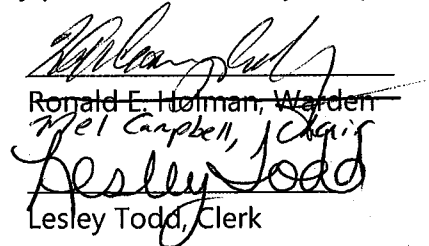 Ronald E. Holman, Warden
Mel Campbell, Chair
Lesley Todd
Lesley Todd, Clerk